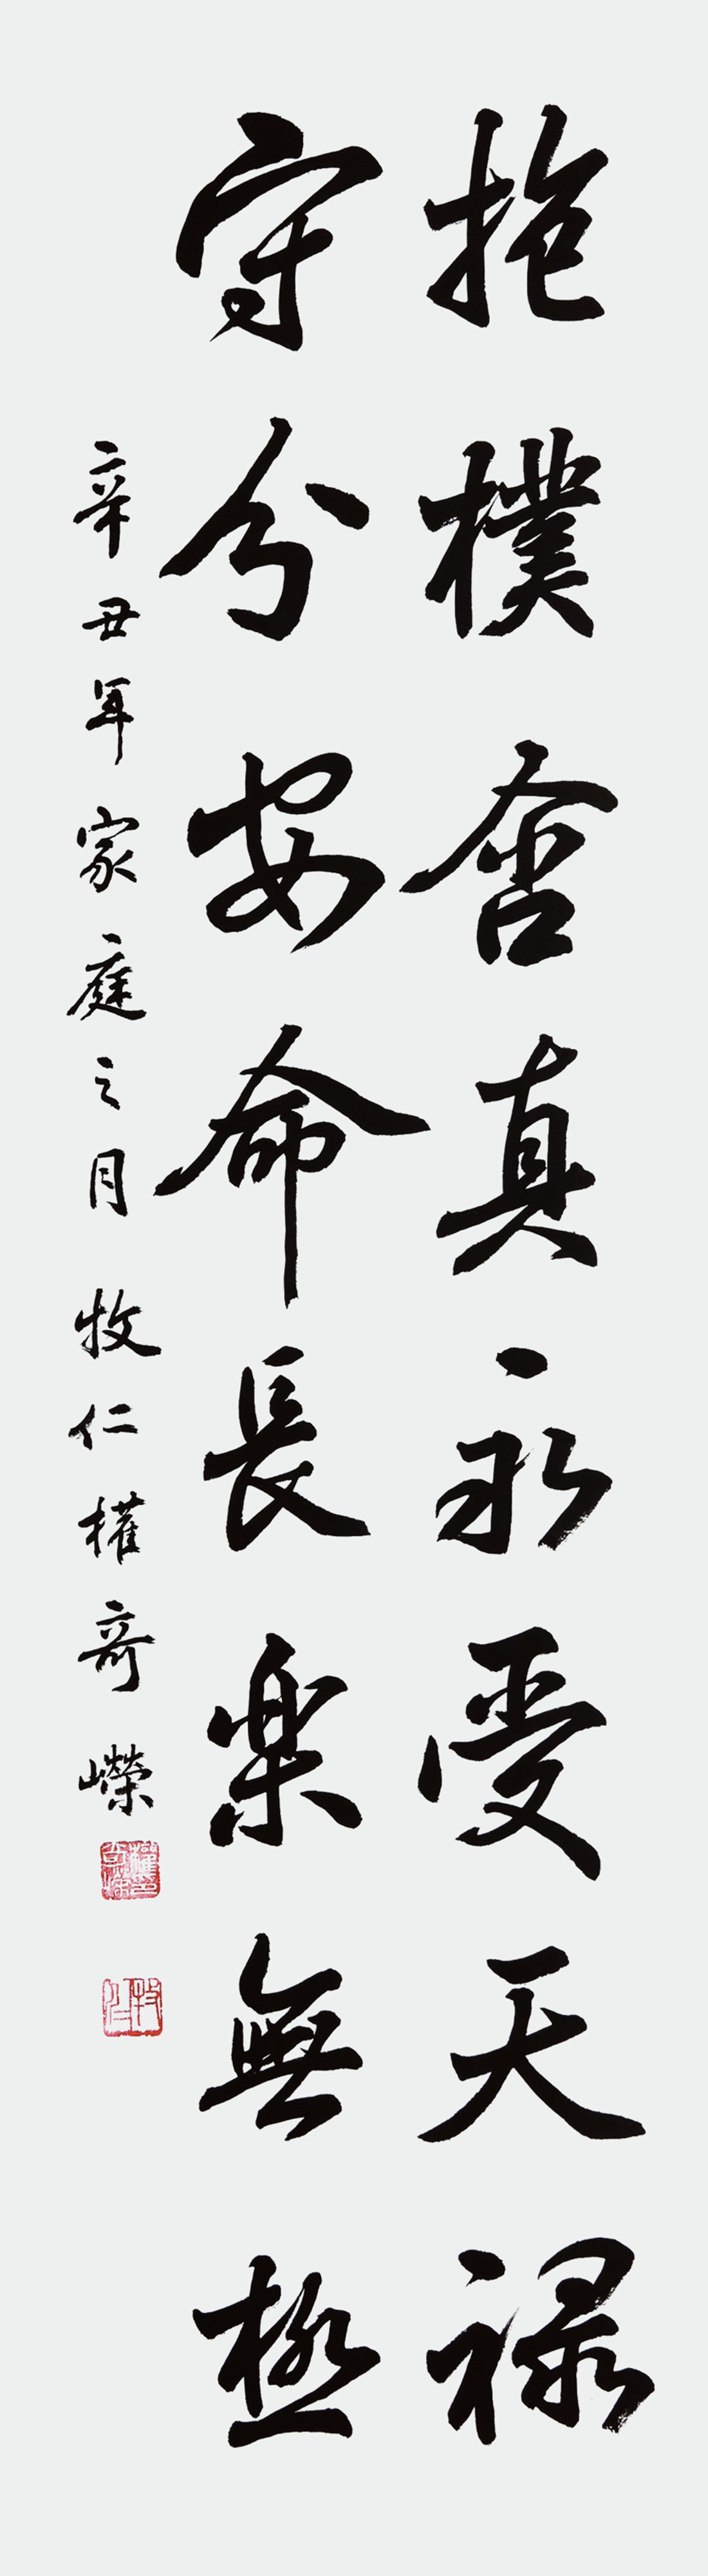 抱樸含真永受天祿
守分安命長樂無極
辛丑年家庭之月 牧仁 權奇嶸